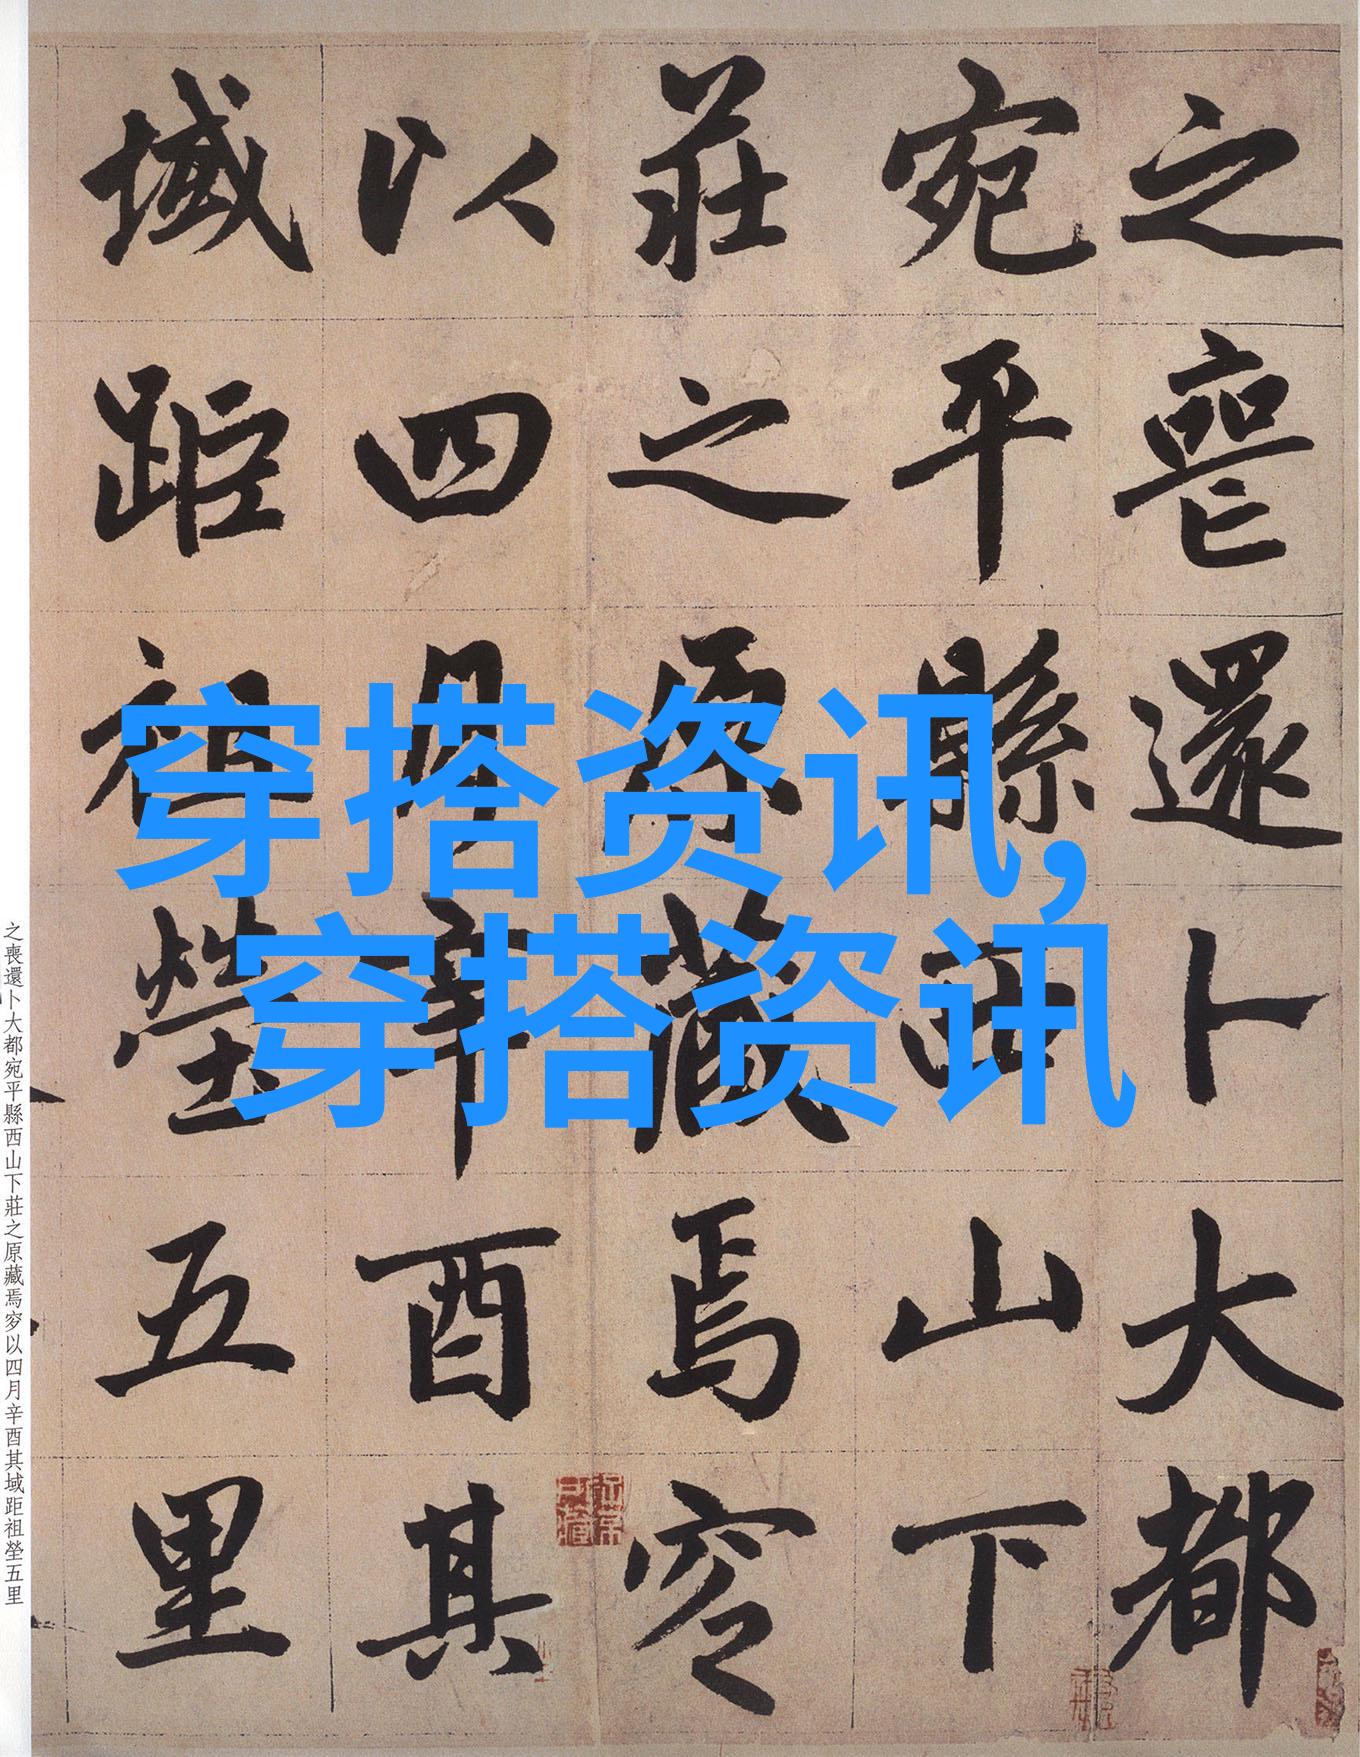 之喪還卜大都
宛平縣西山下
莊之原藏焉穸
以四月辛酉其
域距祖塋五里
穿搭资讯,
穿搭资讯
之喪還卜大都宛平縣西山下莊之原藏焉穸以四月辛酉其域距祖塋五里